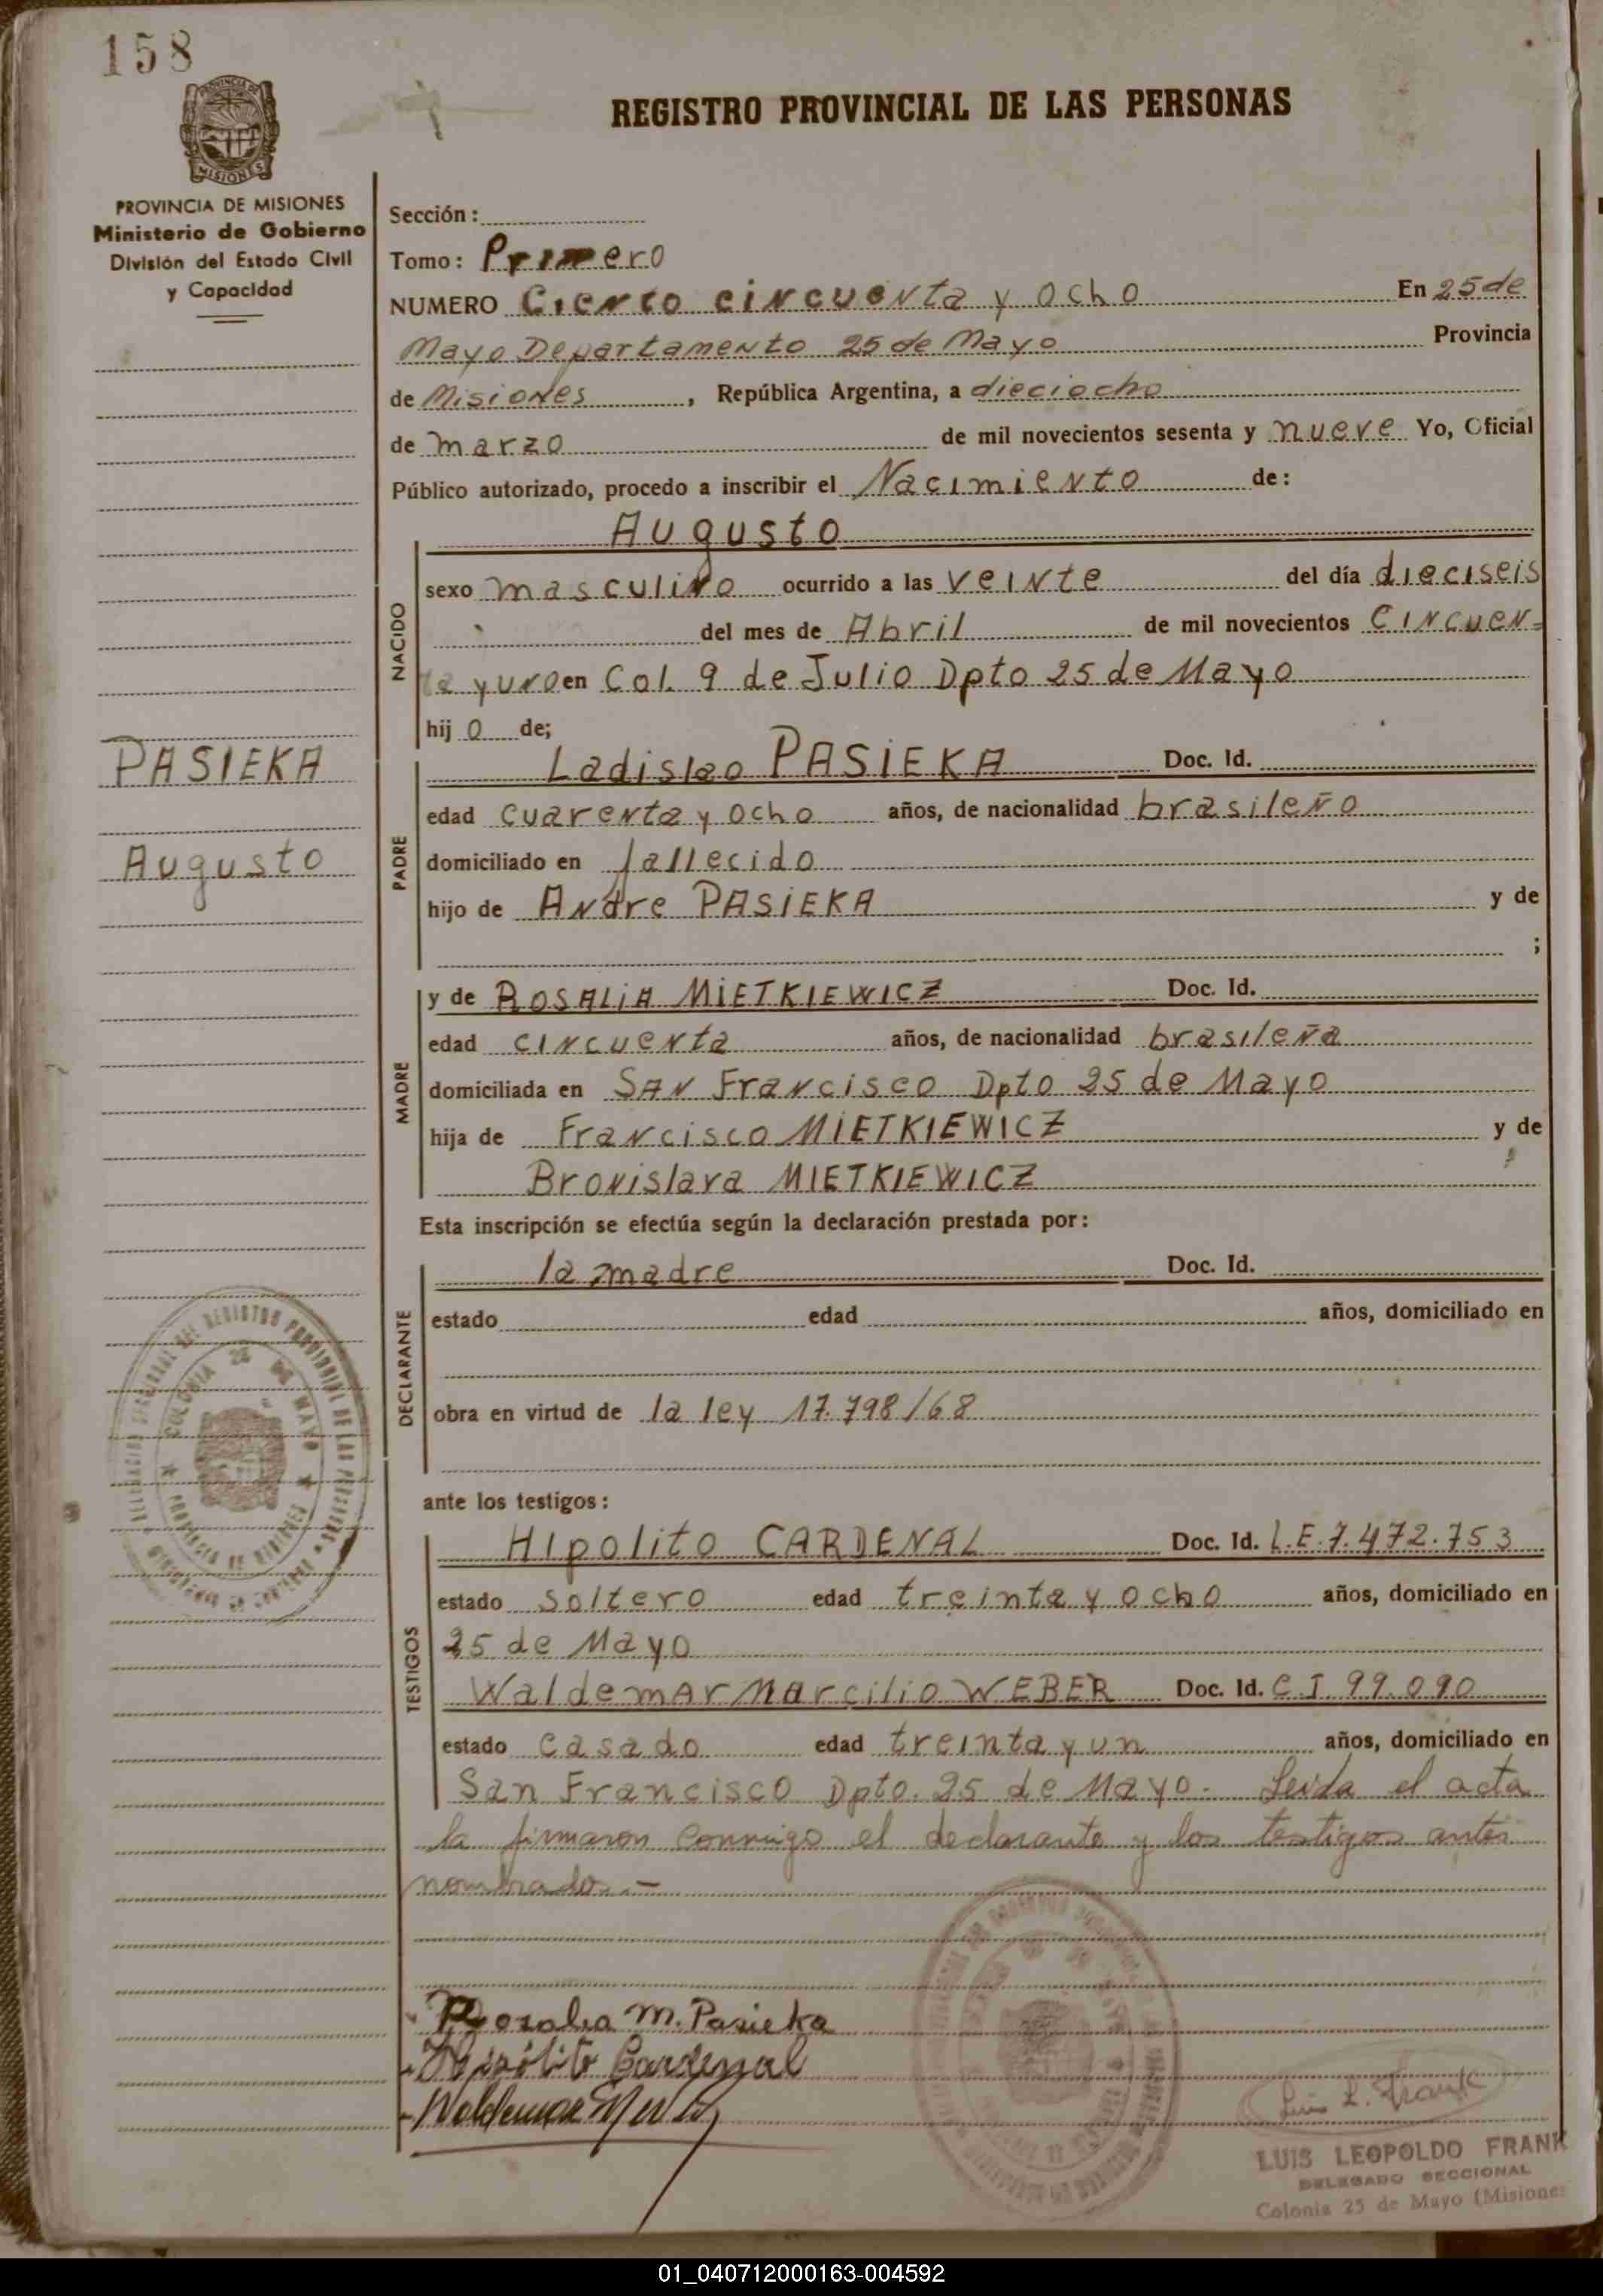 158
REGISTRO PROVINCIAL DE LAS PERSONAS
PROVINCIA DE
MISIONES
PROVINCIA DE MISIONES
Ministerio de Gobierno
División del Estado Civil
y Capacidad
Sección:
Tomo: Primero
NUMERO Ciento cincuenta y ocho En 25 de
Mayo Departamento 25 de Mayo Provincia
de Misiones, República Argentina, a dieciocho
de marzo de mil novecientos sesenta y nueve Yo, Oficial
Público autorizado, procedo a inscribir el Nacimiento de:
Augusto
NACIDO
sexo masculino ocurrido a las veinte del día dieciseis
del mes de Abril de mil novecientos cincuen-
ta y uno en Col. 9 de Julio Dpto 25 de Mayo
hij o de;
PASIEKA
Augusto
PADRE
Ladislao PASIEKA Doc. Id.
edad cuarenta y ocho años, de nacionalidad brasileño
domiciliado en fallecido
hijo de Andre PASIEKA y de
;
MADRE
y de ROSALIA MIETKIEWICZ Doc. Id.
edad cincuenta años, de nacionalidad brasileña
domiciliada en SAN Francisco Dpto 25 de Mayo
hija de Francisco MIETKIEWICZ y de
Bronislava MIETKIEWICZ
Esta inscripción se efectúa según la declaración prestada por:
DECLARANTE
la madre Doc. Id.
estado edad años, domiciliado en
obra en virtud de la ley 17.798/68
ante los testigos:
TESTIGOS
Hipolito CARDENAL Doc. Id. L.E. 7.472.753
estado soltero edad treinta y ocho años, domiciliado en
25 de Mayo
Waldemar Marcilio WEBER Doc. Id. C.I. 99.090
estado casado edad treinta y un años, domiciliado en
San Francisco Dpto. 25 de Mayo. Leida el acta
la firmaron conmigo el declarante y los testigos antes
nombrados.-
COLONIA 25 DE MAYO
PROVINCIA DE MISIONES
Rosalia M. Pasieka
Hipólito Cardenal
Waldemar
Luis L. Frank
LUIS LEOPOLDO FRANK
DELEGADO SECCIONAL
Colonia 25 de Mayo (Misiones
01_040712000163-004592